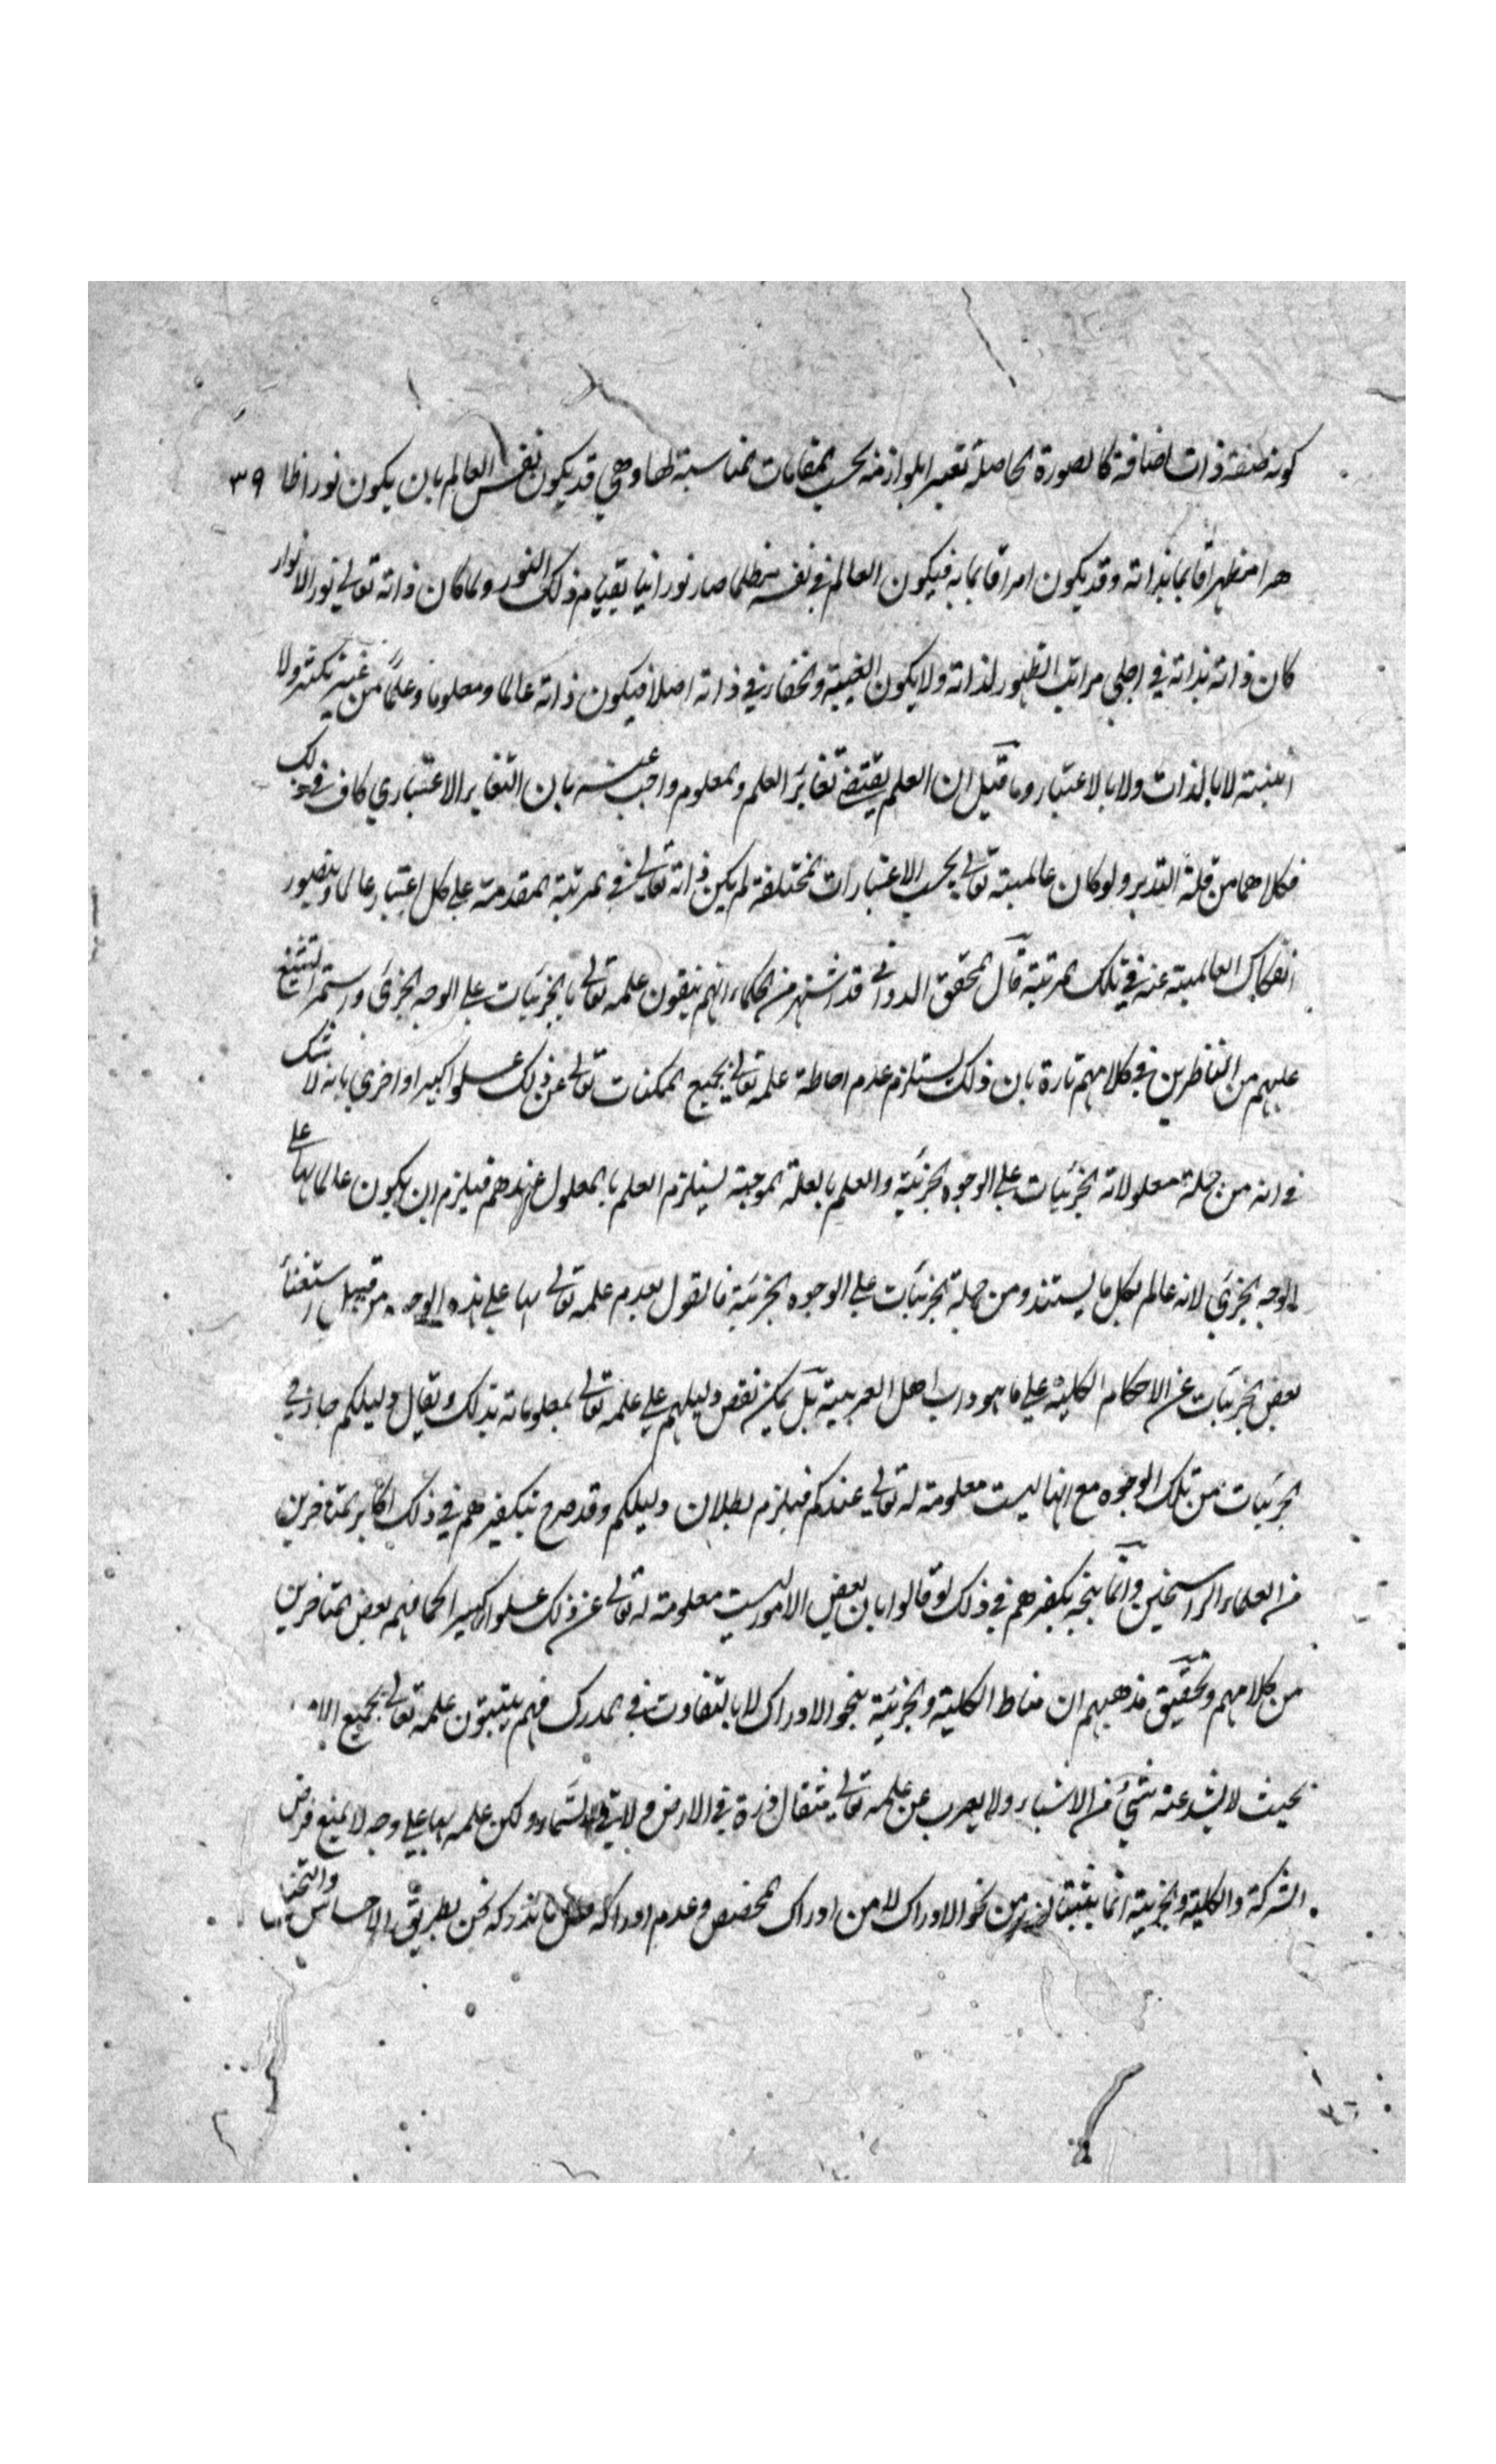 كونه صفة ذات اضافة كالصورة الحاصلة تعبيرا بلوازمه بحسب المقامات المناسبة لها وهي قد يكون نفس العالم بان يكون نورا ظا ٣٩
هرا مظهرا قائما بذاته وقد يكون امرا قائما به فيكون العالم في نفسه مظلما صار نورانيا بقيام ذلك النور ولما كان ذاته تعالى نور الانوار
كان ذاته بذاته في اجلى مراتب الظهور لذاته ولا يكون الغيبة والخفاء في ذاته اصلا فيكون ذاته عالما ومعلوما وعلما من غير تكثر ولا
اثنينة لا بالذات ولا بالاعتبار وما قيل ان العلم يقتضي تغاير العلم والمعلوم واجيب عنه بان التغاير الاعتباري كاف في ذلك
فكلاهما من قلة التدبر ولو كان عالميته تعالى بحسب الاعتبارات المختلفة لم يكن ذاته تعالى في المرتبة المقدمة على كل اعتبار عالما ويتصور
انفكاك العالمية عنه في تلك المرتبة قال المحقق الدواني قد اشتهر من الحكماء انهم ينفون علمه تعالى بالجزئيات على الوجه الجزئي واستمر التشنيع
عليهم من الناظرين في كلامهم تارة بان ذلك يستلزم عدم احاطة علمه تعالى بجميع الممكنات تعالى عن ذلك علوا كبيرا واخرى بانه لا شك
في انه من جملة معلولاته الجزئيات على الوجوه الجزئية والعلم بالعلة الموجبة يستلزم العلم بالمعلول عندهم فيلزم ان يكون عالما بها على
الوجه الجزئي لانه عالم بكل ما يستند ومن جملة الجزئيات على الوجوه الجزئية فالقول بعدم علمه تعالى بها على هذه الوجه من قبيل استثناء
بعض الجزئيات عن الاحكام الكلية على ما هو داب اهل العربية بل يمكن نقض دليلهم على علمه تعالى بمعلوماته بذلك ويقال دليلكم جاز في
الجزئيات من تلك الوجوه مع انها ليست معلومة له تعالى عندكم فيلزم بطلان دليلكم وقد صرح بتكفيرهم في ذلك اكابر المتاخرين
من العلماء الراسخين وانما يتجه تكفيرهم في ذلك لو قالوا بان بعض الامور ليست معلومة له تعالى عن ذلك علوا كبيرا كما فهمه بعض المتاخرين
من كلامهم وتحقيق مذهبهم ان مناط الكلية والجزئية بنحو الادراك لا بالتفاوت في المدرك فهم يثبتون علمه تعالى بجميع الا
بحيث لا يشذ عنه شيء من الاشياء ولا يعزب عن علمه تعالى مثقال ذرة في الارض ولا في السماء ولكن علمه بها على وجه لا يمنع فرض
الشركة والكلية والجزئية انما ينبت من نحو الادراك لا من ادراك المخصص وعدم ادراكه ما ندركه نحن بطريق الاحساس والتخيل